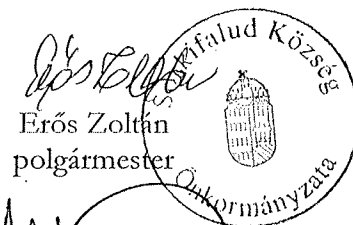 Erős Zoltán
polgármester
Község
Önkormányzata